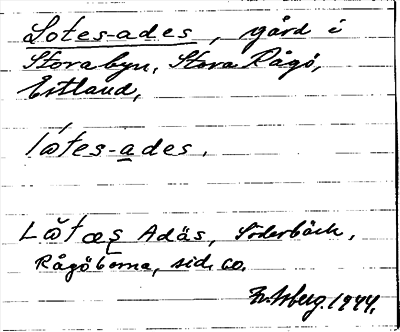 Lotes-ades, gård i
Storabyn, Stora Rågö,
Estland,
lótes-ades.
Lǒtæs Adäs, Söderbäck,
Rågöborna, sid. 60.
Isberg. 1944.